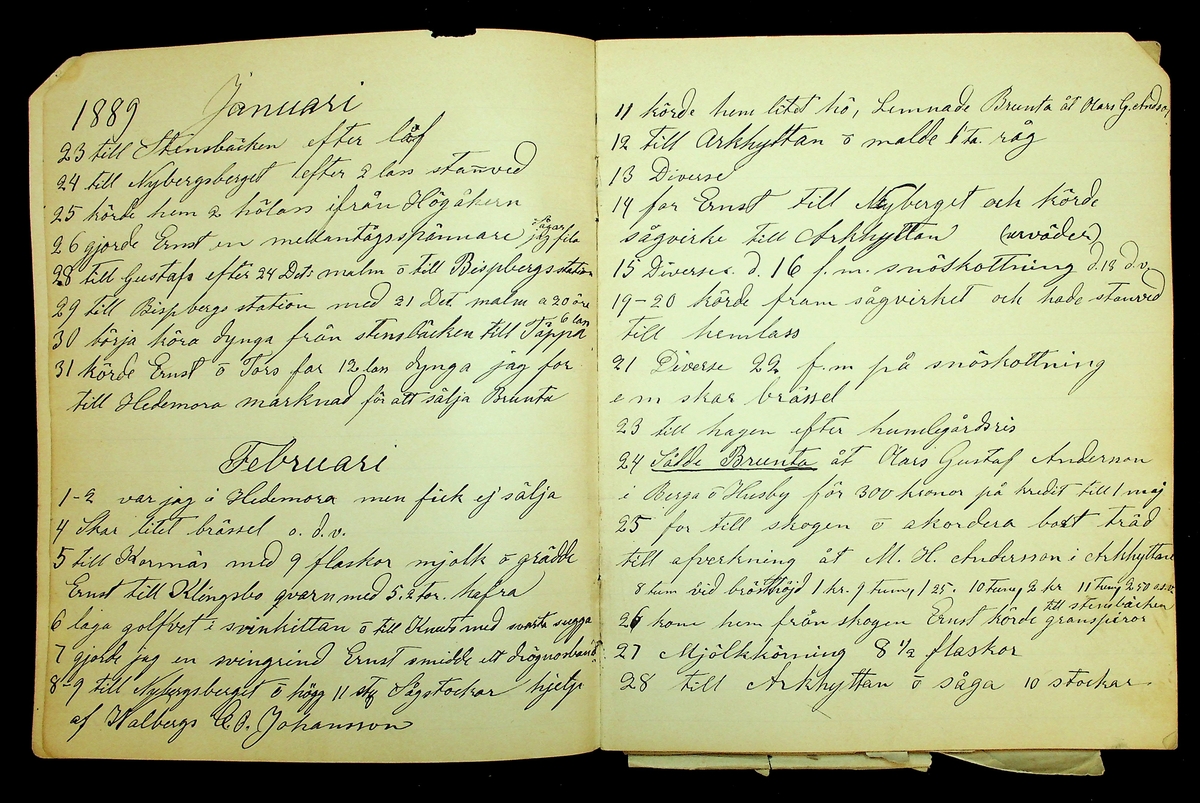 1889 Januari
23 till Stensbäcken efter löf
24 till Nybergsberget efter 2 lass stanved
25 körde hem 2 hölass ifrån Högåkern
26 gjorde Ernst en mellantågsspännare jag fila sågar
28 till Gustafs efter 24 Dets malm o till Bispbergs station
29 till Bispbergs station med 21 Det. malm a 20 öre
30 börja köra dynga från stensbäcken till Täppa 6 las
31 körde Ernst o Tors far 12 las dynga jag for
till Hedemora marknad för att sälja Brunta
Februari
1-2 var jag i Hedemora men fick ej sälja
4 Skar litet brässel o. d. v.
5 till Kornnäs med 9 flaskor mjolk o grädde
Ernst till Klingsbo qvarn med 5.2 tor. hafra
6 laga golfvet i svinkittan o till Knuts med svarta sugga
7 gjorde jag en svingrind Ernst smidde ett
8-9 till Nybergsberget o högg 11 st Sågstockar hjelp
af Halbergs C. O. Johansson
11 körde hem litet hö, Lemnade Brunta åt Olars G. Anders.
12 till Arkhyttan o malde 1 ta. råg
13 Diverse
14 far Ernst till Nyberget och körde
sågvirke till Arkhyttan (urväder)
15 Diverse d. 16 f.m. snöskottning d.18 d.v.
19-20 körde fram sågvirket och hade stanved
till hemlass
21 Diverse 22 f.m på snöskottning
e m skar brässel
23 till hagen efter humlegårdsris
24 Sålde Brunta åt Olars Gustaf Anderson
i Berga o Husby för 300 kronor på kredit till 1 maj
25 for till skogen o akordera bort träd
till afverkning åt M. H. Andersson i Arkhyttan
8 tum vid brösthöjd 1 kr. 9 tum, 1 25. 10 tum, 2 kr 11 tum 2 50 o.s.v.
26 kom hem från skogen Ernst körde gransparor till stensbäcken
27 Mjölkkörning 8 1/2 flaskor
28 till Arkhyttan o såga 10 stockar